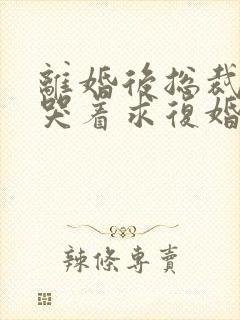 離婚後総裁
哭着求復婚
辣條專賣